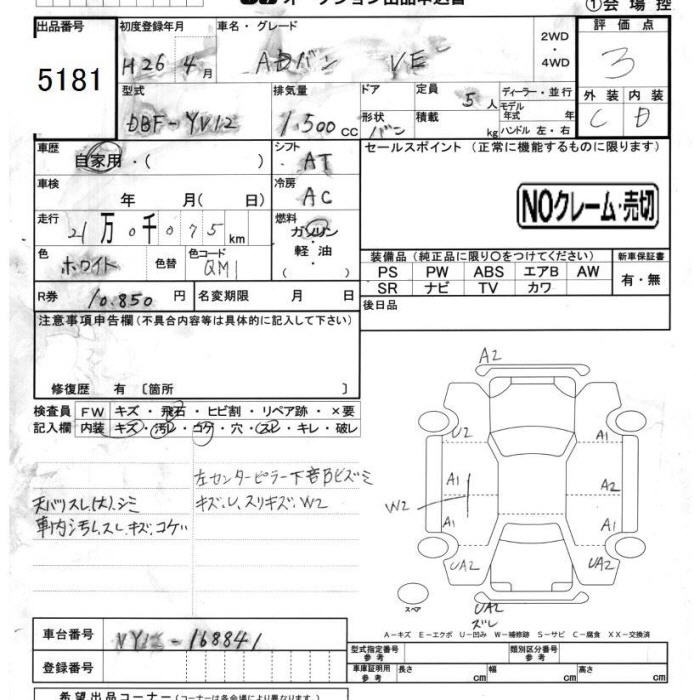 オークション出品申込書 ①会場控
出品番号 5181
初度登録年月 H26年4月
車名・グレード ADバン VE
2WD・4WD
評価点 3
型式 DBF-YV12
排気量 1,500cc
ドア 形状 バン
定員 5人
積載 kg
ディーラー・並行
モデル年式 年
ハンドル 左・右
外装 C 内装 D
車歴 自家用・( )
シフト AT
セールスポイント (正常に機能するものに限ります)
車検 年 月( 日)
冷房 AC
NOクレーム・売切
走行 21万0千075km
燃料 ガソリン・軽油・( )
色 ホワイト 色替 色コード QM1
装備品(純正品に限り○をつけてください) 新車保証書
PS PW ABS エアB AW 有・無
SR ナビ TV カワ
R券 10,850円 名変期限 月 日
後日品
注意事項申告欄(不具合内容等は具体的に記入して下さい)
修復歴 有 〔箇所 〕
検査員 FW キズ・飛石・ヒビ割・リペア跡・×要
記入欄 内装 キズ・汚レ・コゲ・穴・スレ・キレ・破レ
左センターピラー下部Bヒズミ
キズ、U、スリキズ、W2
天バリスレ(大)、シミ
車内汚レスレキズ、コゲ
A2
U2 A1
A1 A2
W2
A1 A1
UA2 UA2
スペア
UA2
ズレ
A-キズ E-エクボ U-凹み W-補修跡 S-サビ C-腐食 XX-交換済
車台番号 VY12-168841
登録番号
型式指定番号 参考 類別区分番号 参考
車庫証明用 参考 長さ cm 幅 cm 高さ cm
希望出品コーナー(コーナーは各会場により異なります。)